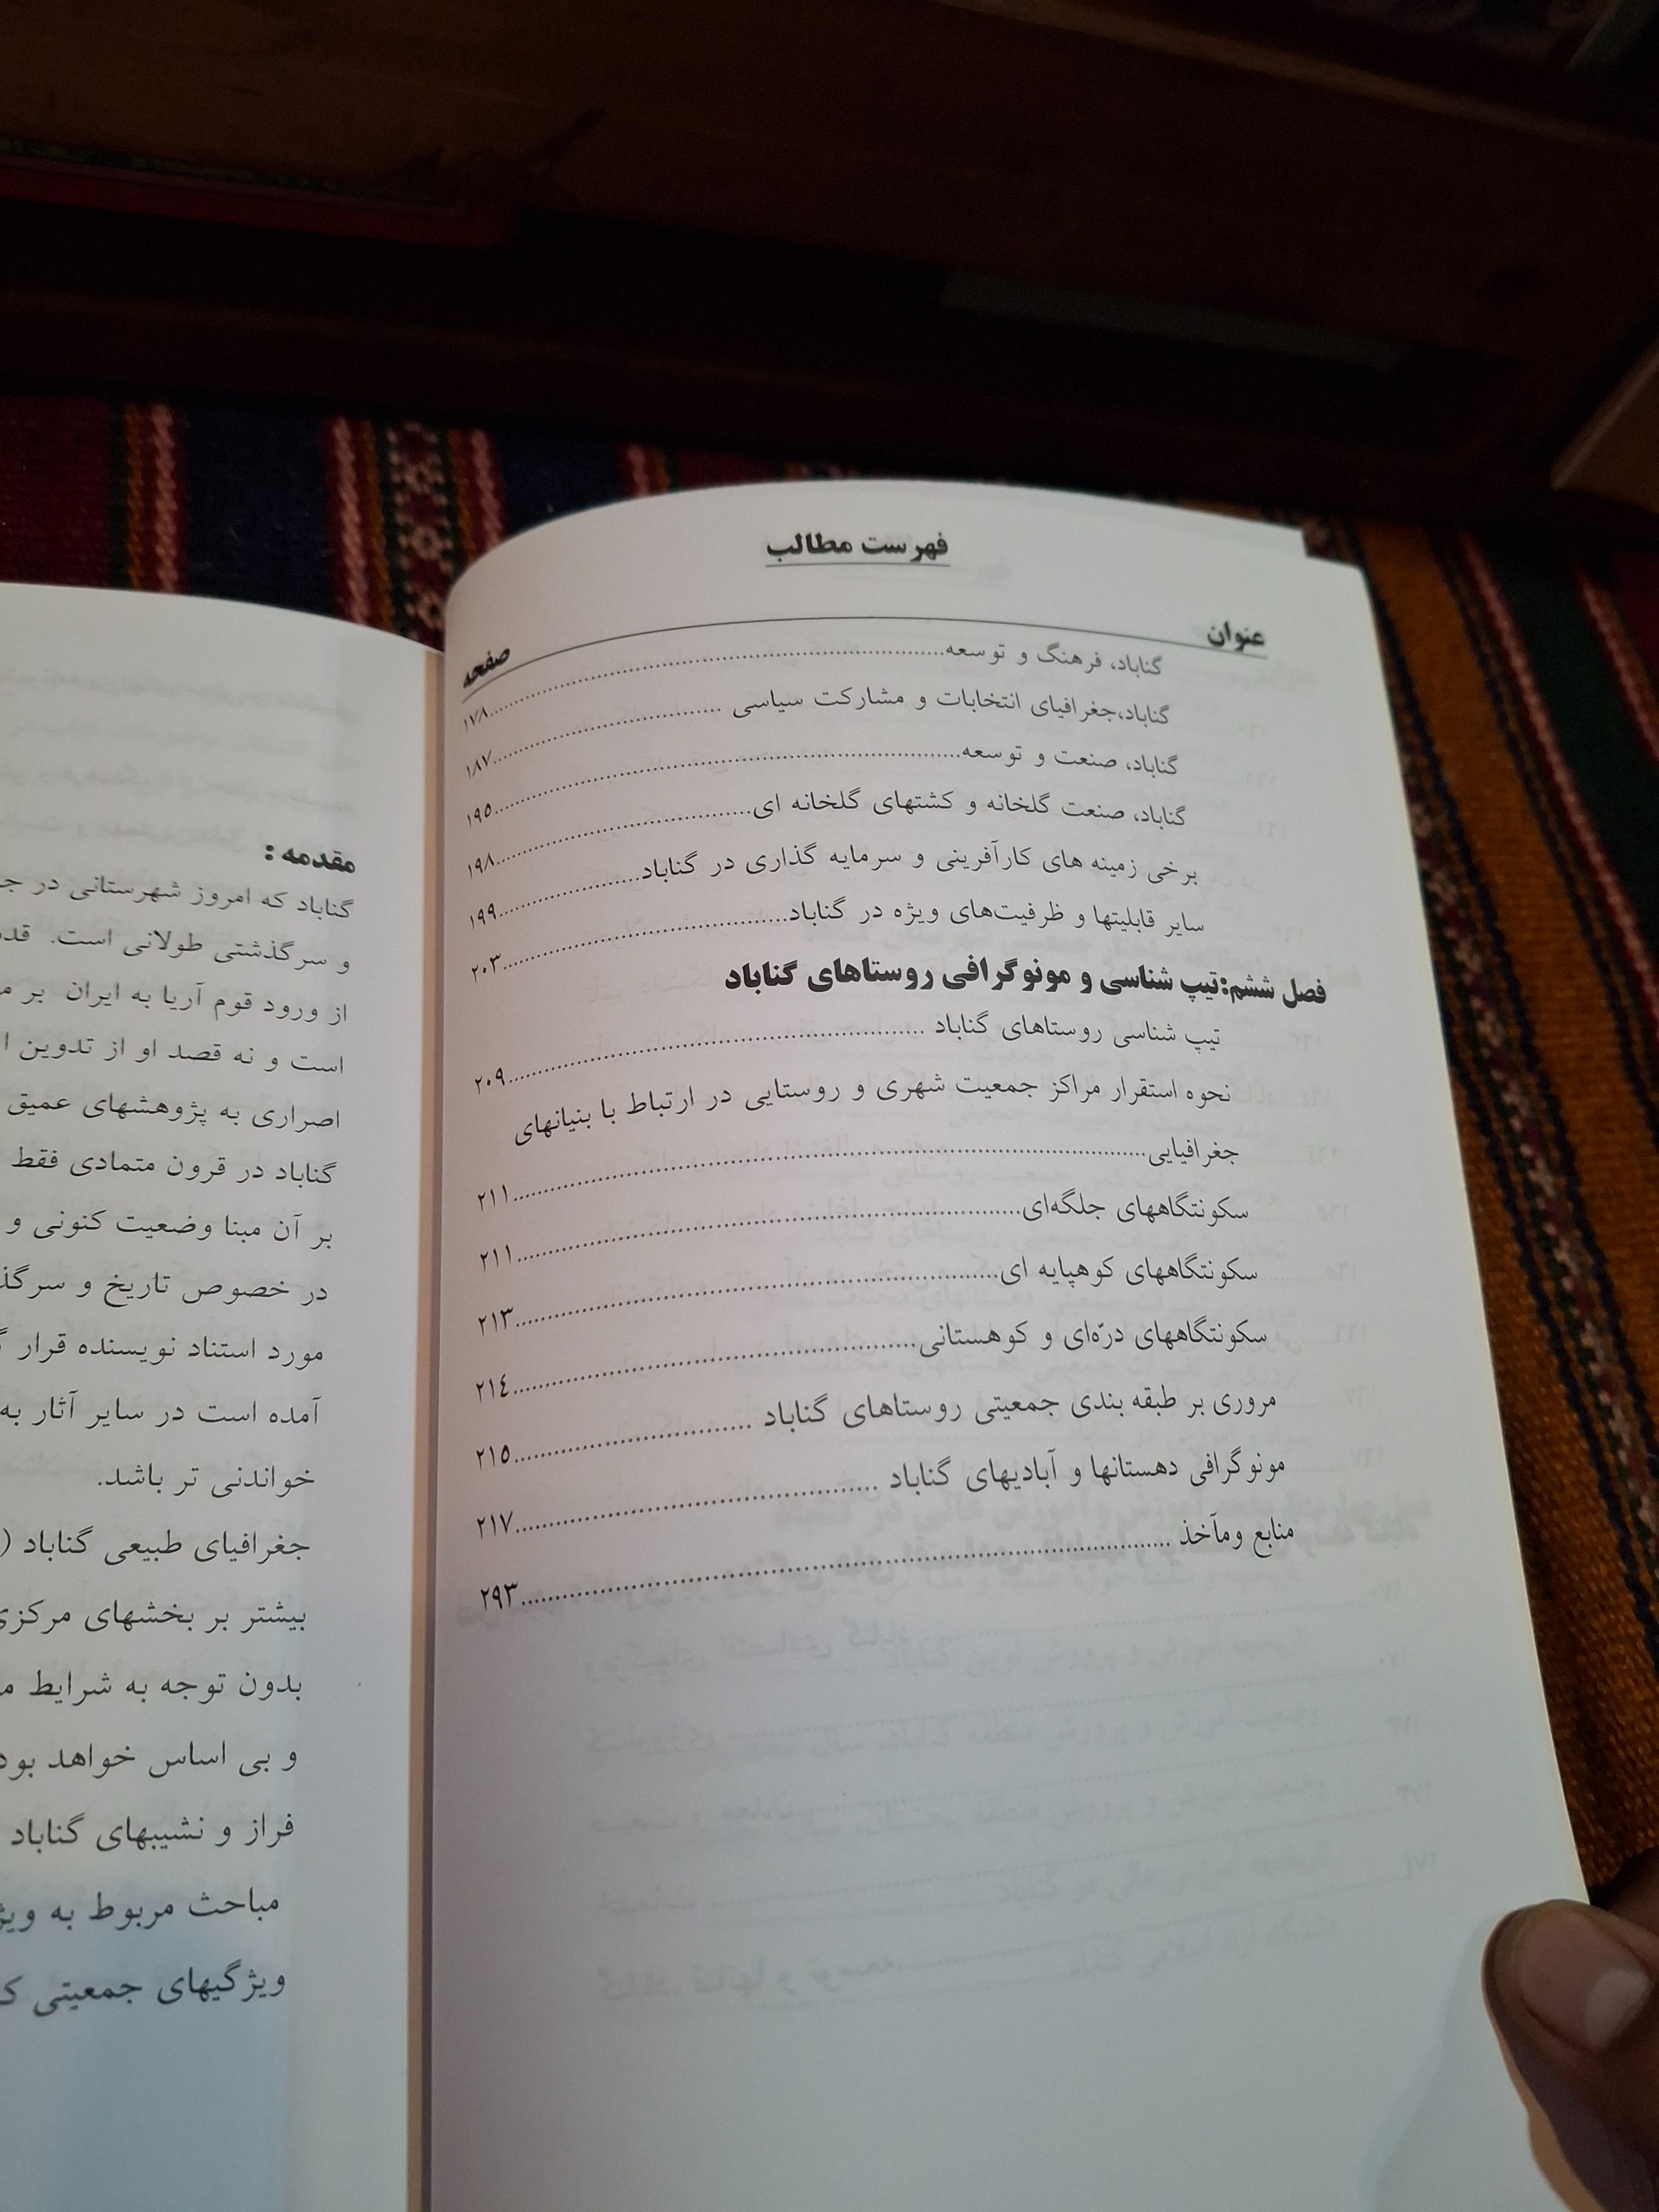 فهرست مطالب
عنوان
صفحه
گناباد، فرهنگ و توسعه..........۱۷۸
گناباد،جغرافیای انتخابات و مشارکت سیاسی ..........۱۸۷
گناباد، صنعت و توسعه..........۱۹۵
گناباد، صنعت گلخانه و کشتهای گلخانه ای..........۱۹۸
برخی زمینه های کارآفرینی و سرمایه گذاری در گناباد..........۱۹۹
سایر قابلیتها و ظرفیت‌های ویژه در گناباد..........۲۰۳
فصل ششم:تیپ شناسی و مونوگرافی روستاهای گناباد
تیپ شناسی روستاهای گناباد ..........۲۰۹
نحوه استقرار مراکز جمعیت شهری و روستایی در ارتباط با بنیانهای
جغرافیایی..........۲۱۱
سکونتگاههای جلگه‌ای..........۲۱۱
سکونتگاههای کوهپایه ای..........۲۱۳
سکونتگاههای درّه‌ای و کوهستانی..........۲۱٤
مروری بر طبقه بندی جمعیتی روستاهای گناباد ..........۲۱۵
مونوگرافی دهستانها و آبادیهای گناباد ..........۲۱۷
منابع ومآخذ ..........۲۹۳
مقدمه :
گناباد که امروز شهرستانی در
و سرگذشتی طولانی است.
از ورود قوم آریا به ایران بر
است و نه قصد او از تدوین
اصراری به پژوهشهای عمیق
گناباد در قرون متمادی فقط
بر آن مبنا وضعیت کنونی و
در خصوص تاریخ و
مورد استناد نویسنده قرار
آمده است در سایر آثار به
خواندنی تر باشد.
جغرافیای طبیعی گناباد (
بیشتر بر بخشهای مرکزی
بدون توجه به شرایط
و بی اساس خواهد بود
فراز و نشیبهای گناباد
مباحث مربوط به
ویژگیهای جمعیتی